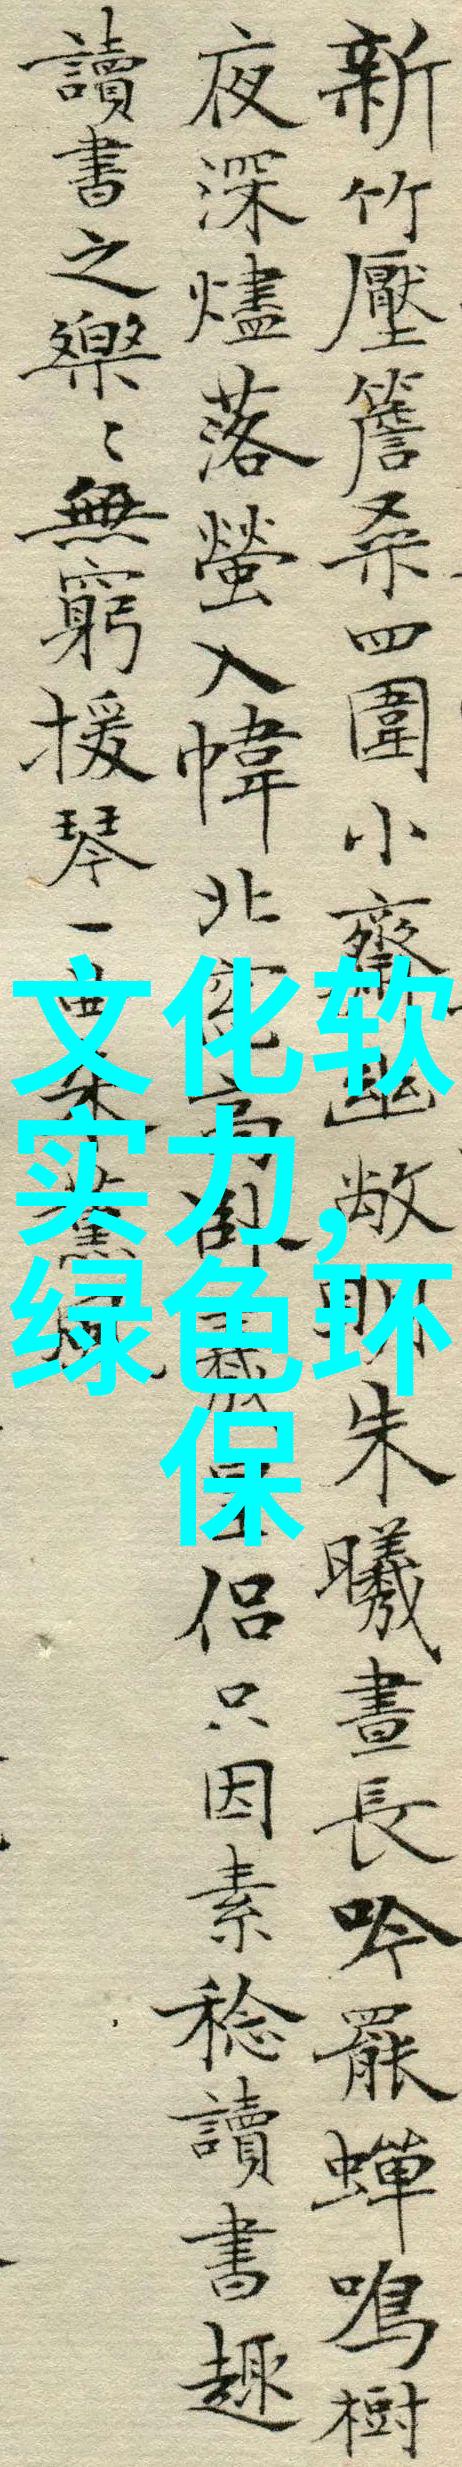 新竹壓簷桑四圍小齋幽敞明朱曦晝長吟罷蟬鳴樹
夜深燼落螢入幃北窓高臥羲皇侶只因素稔讀書趣
讀書之樂〻無窮援琴一曲來薰風
文化软
实力,
绿色环
保